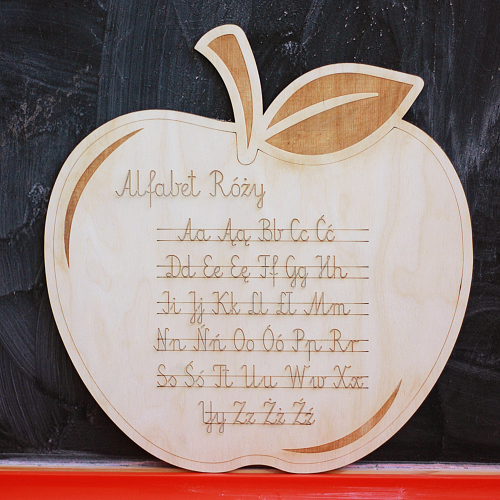 Alfabet Róży
Aa Ąą Bb Cc Ćć
Dd Ee Ęę Ff Gg Hh
Ii Jj Kk Ll Łł Mm
Nn Ńń Oo Óó Pp Rr
Ss Śś Tt Uu Ww Xx
Yy Zz Żż Źź